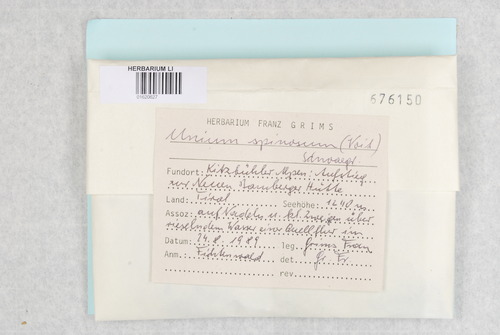 HERBARIUM LI
01620627
676150
HERBARIUM FRANZ GRIMS
Mnium spinosum (Voit)
Schwaegr.
Fundort: Kitzbühler Alpen: Aufstieg
zur Neuen Bamberger Hütte
Land: Tirol Seehöhe: 1240 m
Assoz: auf Nadeln u. kl. Zweigen über
rieselndem Wasser einer Quellflur im
Datum: 24.8.1989 leg. Grims Franz
Anm.: Fichtenwald det. Gr. Fr.
rev.